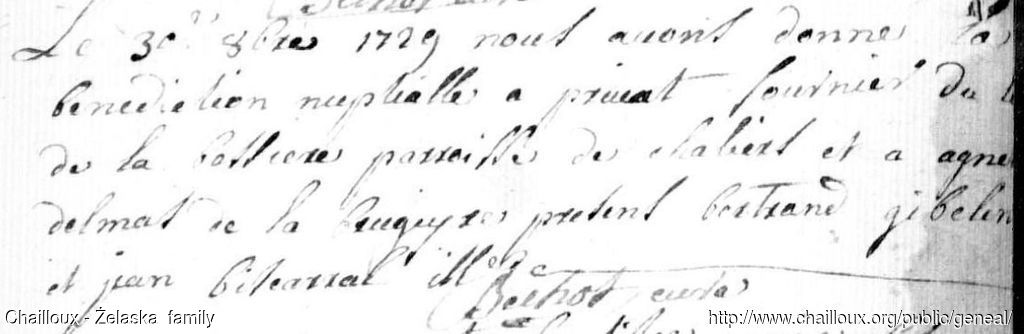 Le 30e 8bre 1729 nous avons donne la
benediction nuptialle a privat fournier du
de la bessiere parroisse de chabert et a agnes
delmas de la brugeyre present bertrand gibelin
et jean bitarral ill
curé
Chailloux - Żelaska family http://www.chailloux.org/public/geneal/